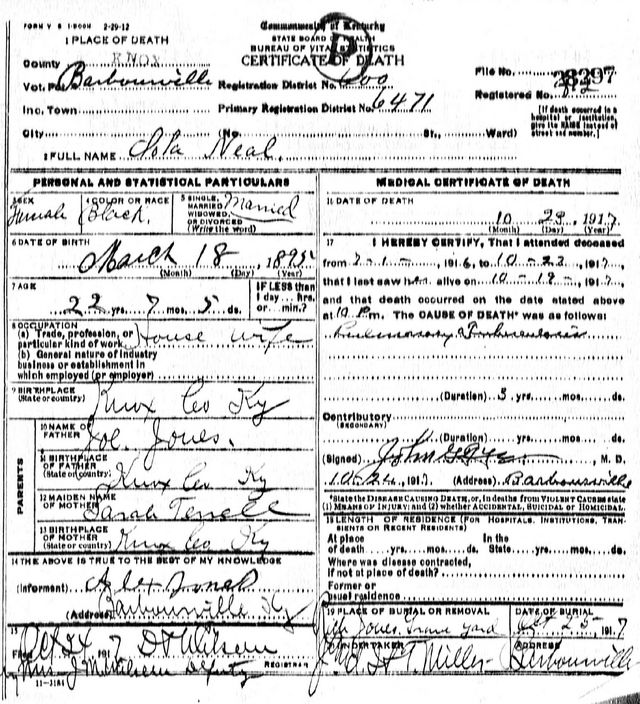 FORM V S 1-500M 2-29-12
Commonwealth of Kentucky
STATE BOARD OF HEALTH
BUREAU OF VITAL STATISTICS
CERTIFICATE OF DEATH
1 PLACE OF DEATH
County KNOX
Vot. Pct Barbourville
Inc. Town
City (No. St., Ward)
Registration District No. 600
Primary Registration District No. 6471
File No. 28297
Registered No.
[If death occurred in a
hospital or institution,
give its NAME instead of
street and number.]
2 FULL NAME Neal.
PERSONAL AND STATISTICAL PARTICULARS
3 SEX
Female
4 COLOR OR RACE
Black
5 SINGLE,
MARRIED
WIDOWED,
OR DIVORCED
(Write the word)
Married
6 DATE OF BIRTH
March 18, 1895
(Month) (Day) (Year)
7 AGE
22 yrs. 7 mos. 5 ds.
IF LESS than
1 day... hrs.
or ... min.?
8 OCCUPATION
(a) Trade, profession, or
particular kind of work House wife
(b) General nature of industry
business or establishment in
which employed (or employer)
9 BIRTHPLACE
(State or country) Knox Co Ky
PARENTS
10 NAME OF
FATHER Joe Jones.
11 BIRTHPLACE
OF FATHER
(State or country) Knox Co Ky
12 MAIDEN NAME
OF MOTHER Sarah Terrell
13 BIRTHPLACE
OF MOTHER
(State or country) Knox Co Ky
14 THE ABOVE IS TRUE TO THE BEST OF MY KNOWLEDGE
(Informent) Jones
(Address) Barbourville Ky
15
Filed Oct 24 1917
REGISTRAR
Deputy
11-3184
MEDICAL CERTIFICATE OF DEATH
16 DATE OF DEATH
10 23, 1917
(Month) (Day) (Year)
17 I HEREBY CERTIFY, That I attended deceased
from 7-1-, 1916, to 10-23-, 1917,
that I last saw her alive on 10-19-, 1917,
and that death occurred on the date stated above
at 10 Pm. The CAUSE OF DEATH* was as follows:
Pulmonary Tuberculosis
(Duration) 3 yrs. mos. ds.
Contributory
(SECONDARY)
(Duration) yrs. mos. ds.
(Signed) John, M. D.
10-24, 1917 (Address) Barbourville
*State the DISEASE CAUSING DEATH, or, in deaths from VIOLENT CAUSES state
(1) MEANS OF INJURY; and (2) whether ACCIDENTAL, SUICIDAL or HOMICIDAL.
18 LENGTH OF RESIDENCE (FOR HOSPITALS, INSTITUTIONS, TRANSIENTS
OR RECENT RESIDENTS)
At place In the
of death yrs. mos. ds. State yrs. mos. ds.
Where was disease contracted,
if not at place of death?
Former or
usual residence
19 PLACE OF BURIAL OR REMOVAL
Jones Grave yard
DATE OF BURIAL
Oct 25, 1917
20 UNDERTAKER
Miller
ADDRESS
Barbourville